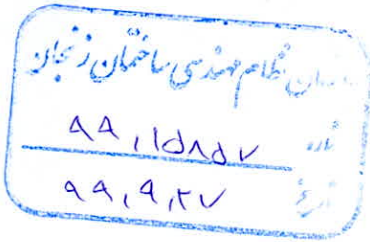 سازمان نظام مهندسی ساختمان زنجان
شماره ۹۹,۱۵۸۵۷
تاریخ ۹۹,۹,۲۷